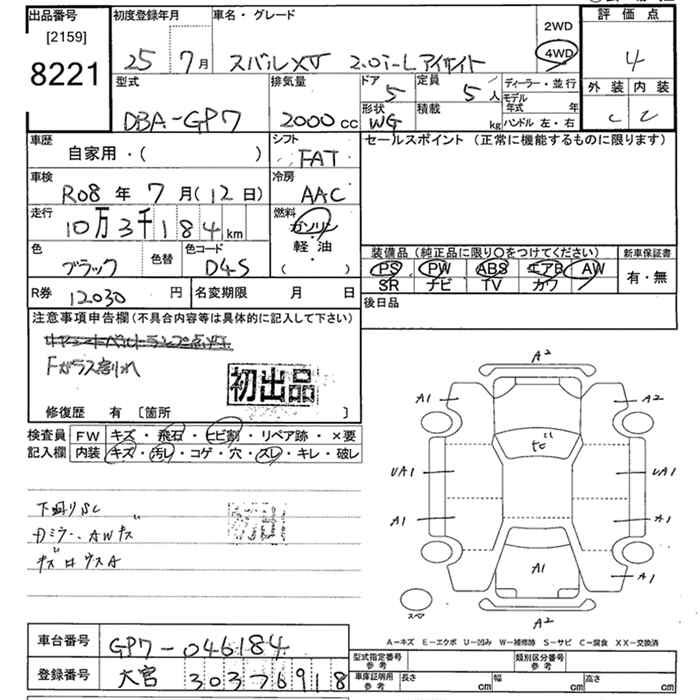 出品番号
[2159]
8221
初度登録年月
25 7月
車名・グレード
スバルXV 2.0i-L アイサイト
2WD
4WD
評価点
4
外装 内装
C C
型式
DBA-GP7
排気量
2000cc
ドア
5
定員
5人
形状
WG
積載
kg
ディーラー・並行
モデル年式 年
ハンドル 左・右
車歴
自家用・( )
シフト
FAT
セールスポイント (正常に機能するものに限ります)
車検
R08年 7月(12日)
冷房
AAC
走行
10万3千184km
燃料
ガソリン
軽・油
( )
色
ブラック
色替
色コード
D4S
装備品 (純正品に限り○をつけてください)
PS PW ABS エアB AW
SR ナビ TV カワ
新車保証書
有・無
R券 12030円
名変期限 月 日
後日品
注意事項申告欄(不具合内容等は具体的に記入して下さい)
Fガラス割れ
初出品
修復歴 有 [箇所 ]
検査員記入欄
FW キズ・飛石・ヒビ割・リペア跡・×要
内装 キズ・汚レ・コゲ・穴・スレ・キレ・破レ
下回りSC
Dミラー、AWキズ
初出
A2
A1 A2
UA1 UA1
A1 A1
A1 A1
スペア
A2
A-キズ E-エクボ U-凹み W-補修跡 S-サビ C-腐食 XX-交換済
車台番号
GP7-046184
登録番号
大宮 303 76918
型式指定番号
参考
類別区分番号
参考
車庫証明用
参考
長さ cm
幅 cm
高さ cm